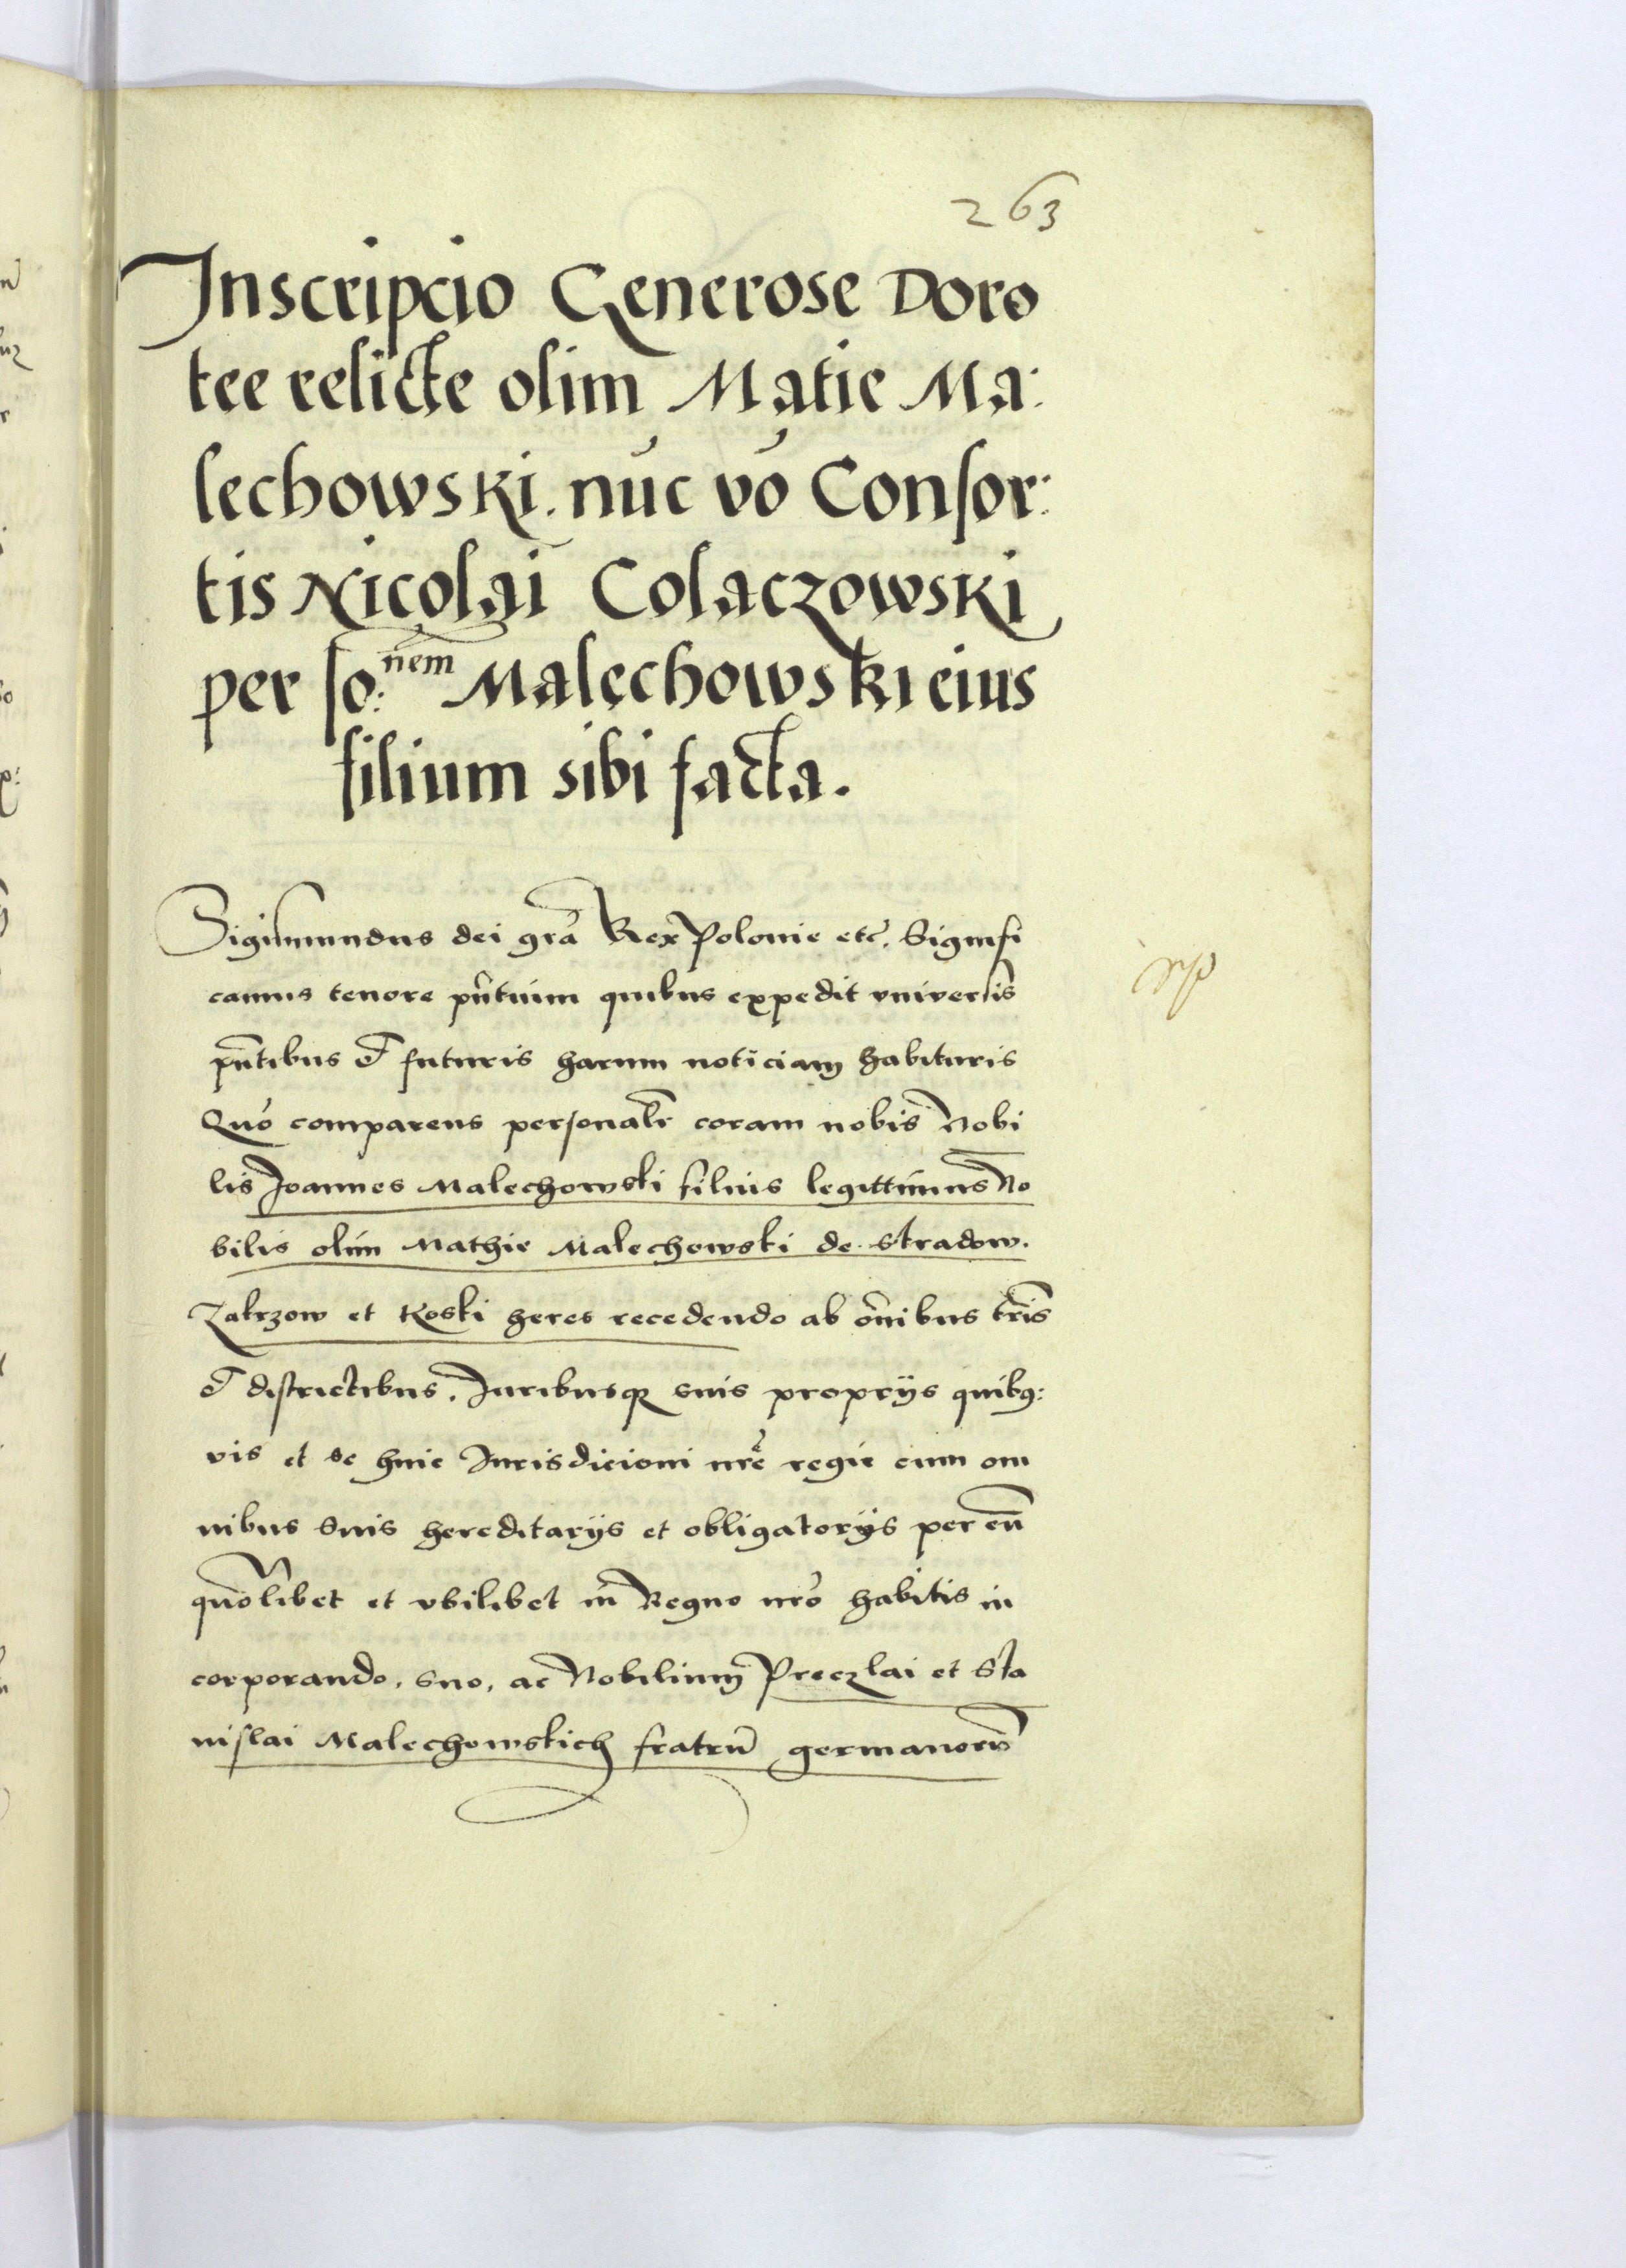 263
Inscripcio Generose Doro
tee relicte olim Matie Ma:
lechowski. nūc vō Consor:
tis Nicolai Colaczowski
per Jo:nem Malechowski eius
filium sibi facta.
Sigismundus dei grā Rex Polonie etc̄. Signifi
camus tenore pn̄tuim quibus expedit vniversis
pn̄tibus et futuris harum noticiam habituris
Quō comparens personalr̄ coram nobis Nobi
lis Joannes Malechowski filius legittimus No
bilis olim Mathie Malechowski de Stradow.
Zakrzow et Koski heres recedendo ab om̄ibus tr̄is
et districtibus. Iuribusqȝ suis proprijs quibȝ:
vis et se huic Iurisdicioni nr̄e regie cum om
nibus suis hereditarijs et obligatorijs per eū
quōlibet et vbilibet in Regno nrō habitis in
corporando, suo, ac Nobilium Preczlai et Sta
nislai Malechowskich fratrū germanorū